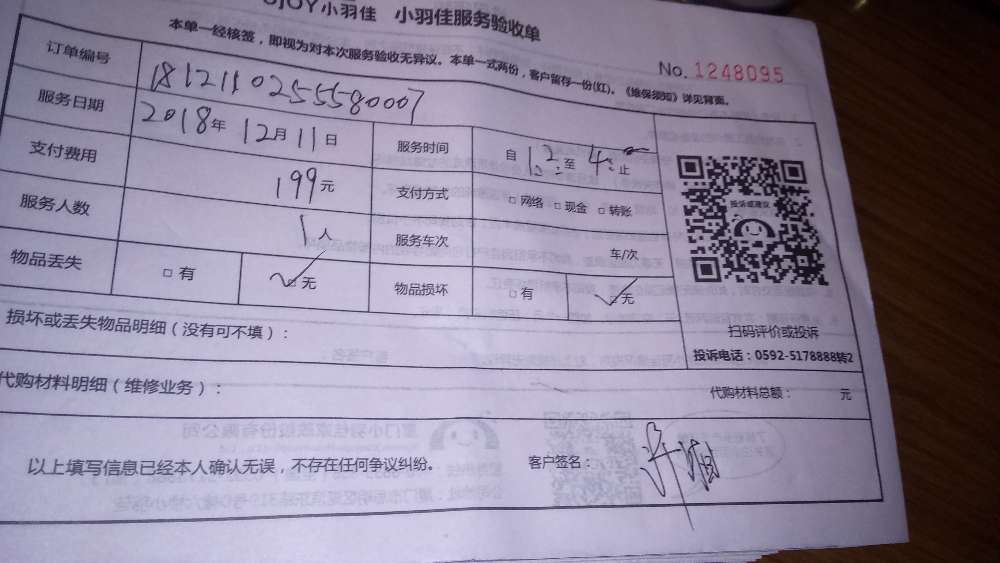 JOY小羽佳 小羽佳服务验收单
本单一经核签，即视为对本次服务验收无异议。本单一式两份，客户留存一份(红)。《维保须知》详见背面。
No. 1248095
订单编号 1812110255580007
服务日期 2018年 12月 11日 服务时间 自 12: 至 4: 止
支付费用 199元 支付方式 □网络 □现金 □转账
服务人数 1人 服务车次 车/次
物品丢失 □有 ☑无 物品损坏 □有 ☑无
投诉或建议
扫码评价或投诉
投诉电话：0592-5178888转2
损坏或丢失物品明细（没有可不填）：
代购材料明细（维修业务）：
代购材料总额： 元
以上填写信息已经本人确认无误，不存在任何争议纠纷。 客户签名：